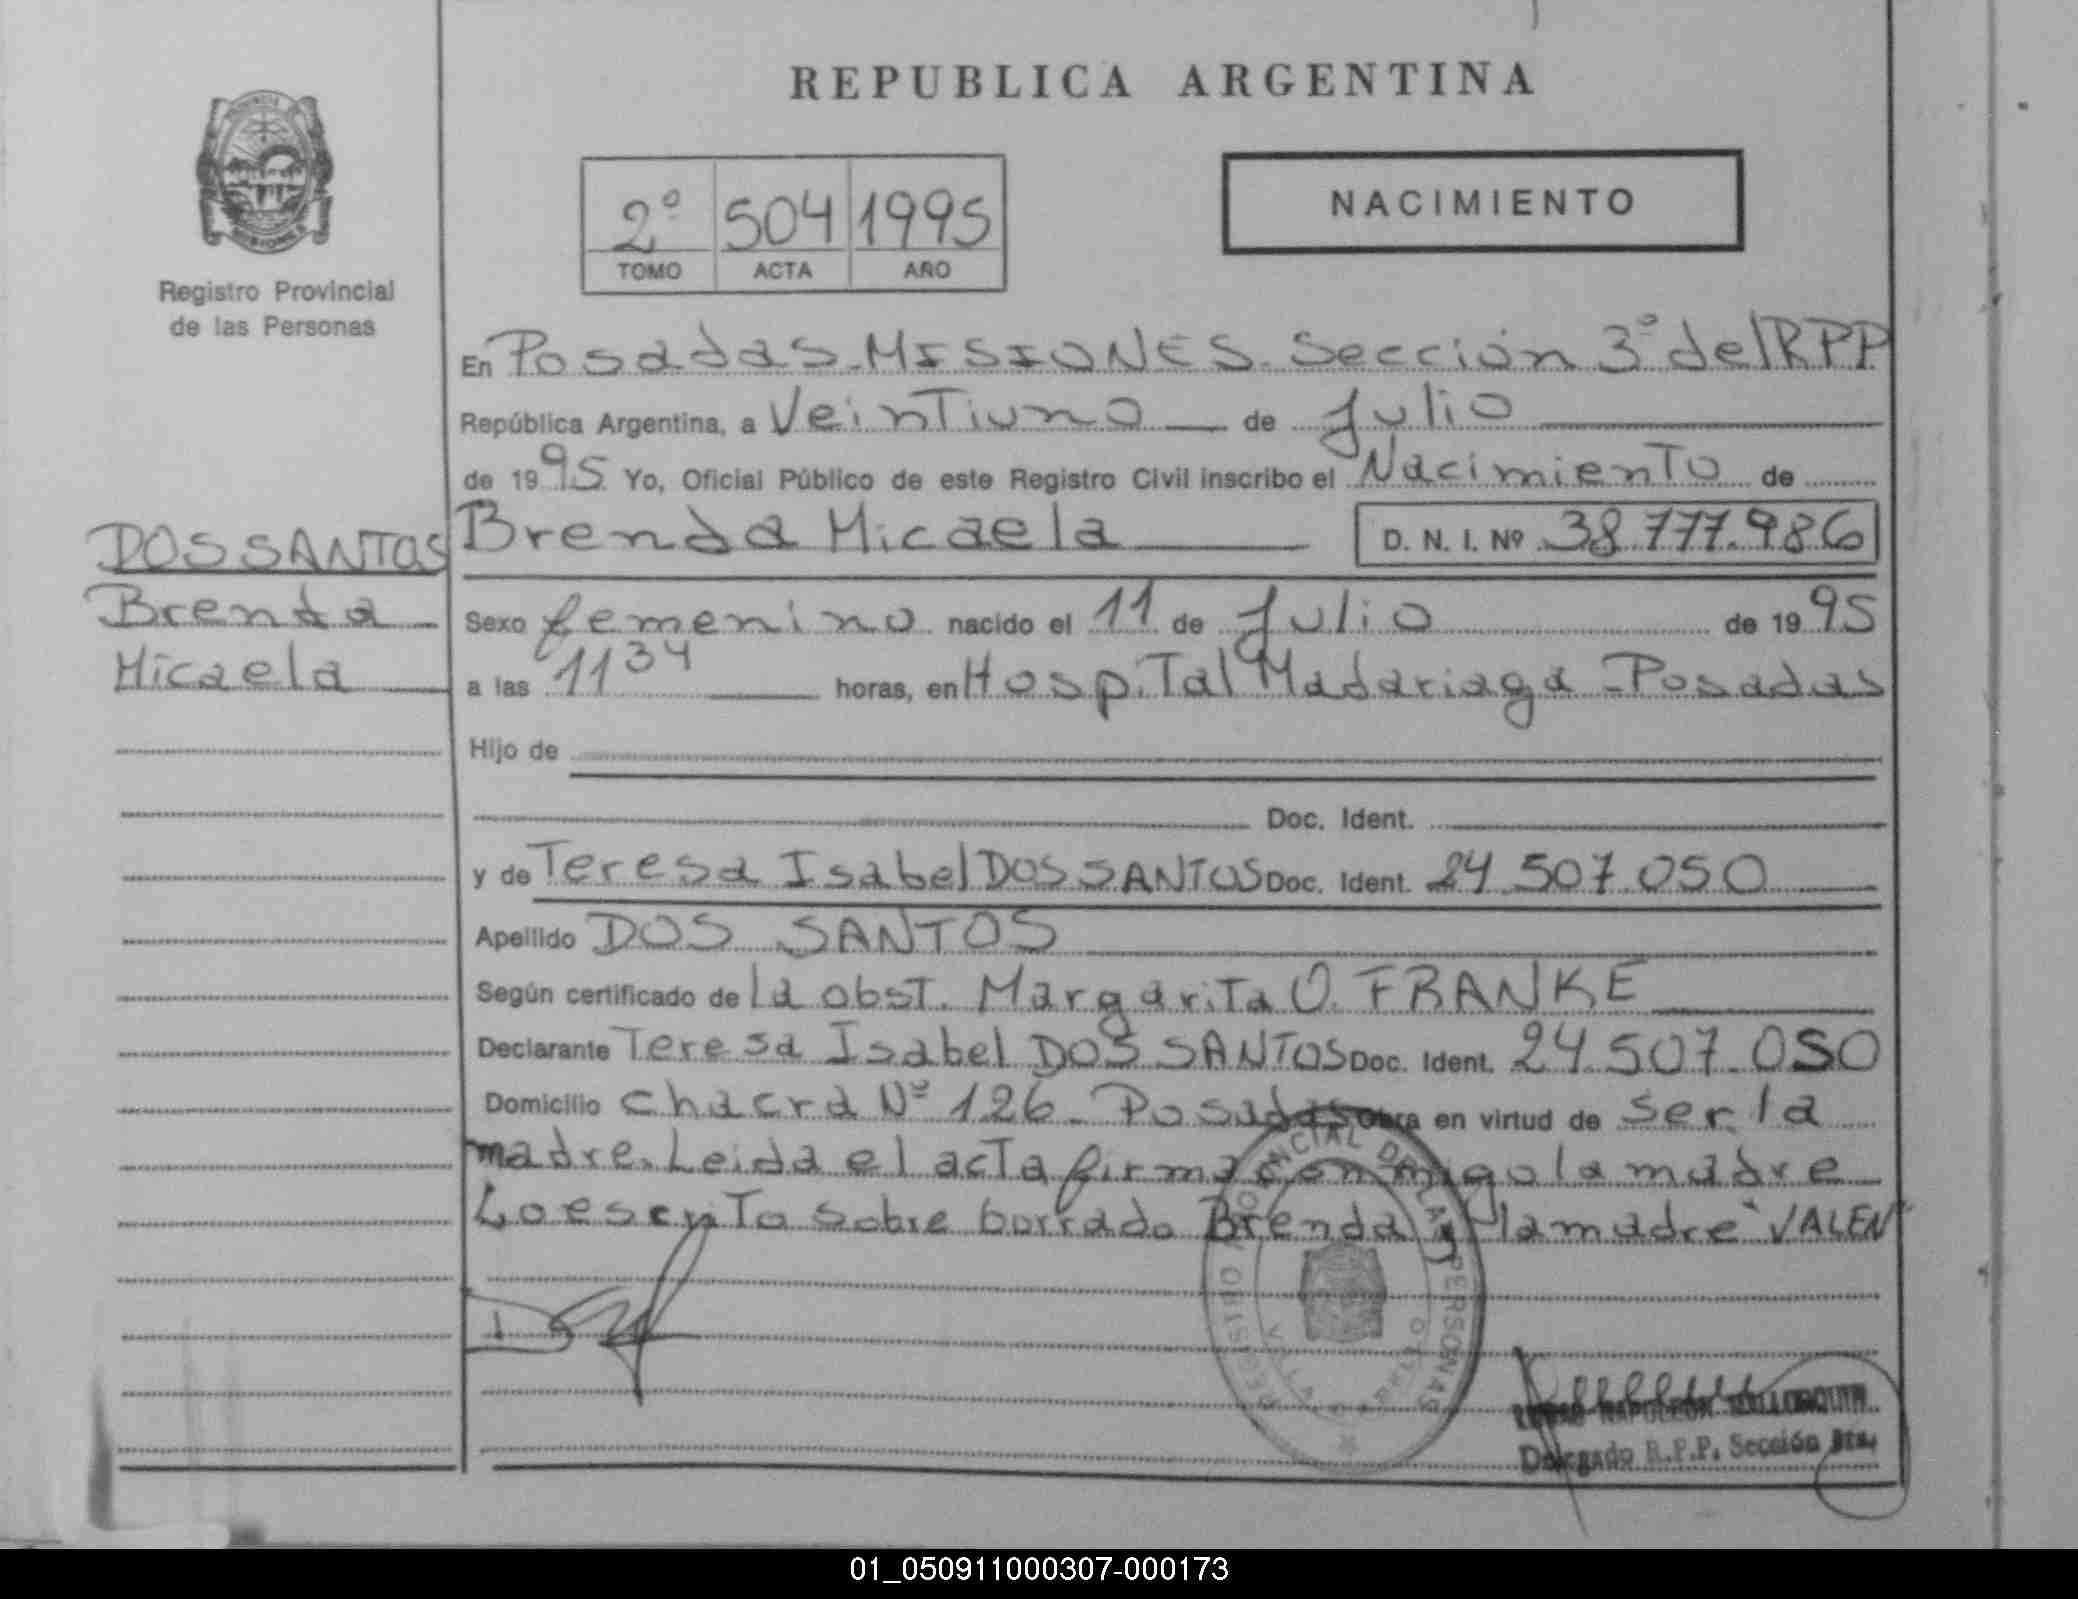 REPUBLICA ARGENTINA
NACIMIENTO
2º 504 1995
TOMO ACTA AÑO
Registro Provincial
de las Personas
En Posadas - MISIONES - Sección 3º del RPP
República Argentina, a Veintiuno de Julio
de 1995 Yo, Oficial Público de este Registro Civil inscribo el Nacimiento de
DOS SANTOS
Brenda
Micaela
Brenda Micaela D. N. I. Nº 38.777.986
Sexo femenino nacido el 11 de Julio de 1995
a las 11 34 horas, en Hospital Madariaga - Posadas
Hijo de
Doc. Ident.
y de Teresa Isabel DOS SANTOS Doc. Ident. 24.507.050
Apellido DOS SANTOS
Según certificado de la obst. Margarita O. FRANKE
Declarante Teresa Isabel DOS SANTOS Doc. Ident. 24.507.050
Domicilio chacra Nº 126 - Posadas Obra en virtud de ser la
madre. Leida el acta firma conmigo la madre
Lo escrito sobre borrado "Brenda y la madre" VALEN
REGISTRO PROVINCIAL DE LAS PERSONAS
NAPOLEON
Delegado R.P.P. Sección 3ra.
01_050911000307-000173